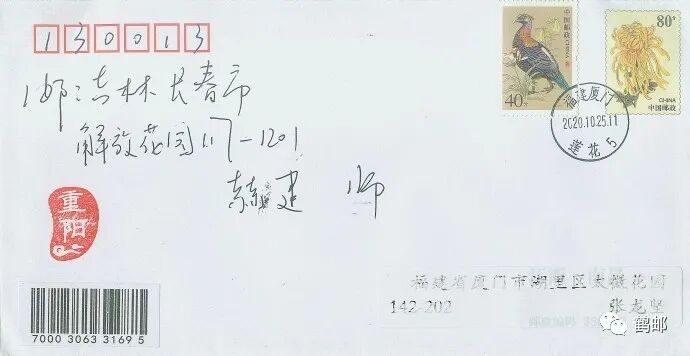 130013
邮：吉林长春市
解放花园117-1201
赫建 师
40分
中国邮政
CHINA
80分
CHINA
中国邮政
福建厦门
2020.10.25.11
莲花 5
重阳
7000 3063 3169 5
福建省厦门市湖里区太微花园
142-202 张龙坚
邮政编码
鹤邮